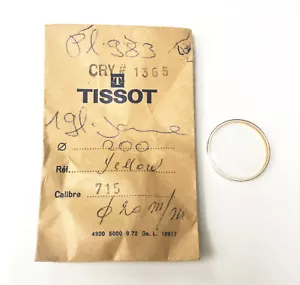 Pl 983
CRY # 1365
T
TISSOT
1 gl. jaune
Ø 200
Réf. Yellow
Calibre 715
Ø 20 m/m
4920 5000 9 72 Ge. L. 16917